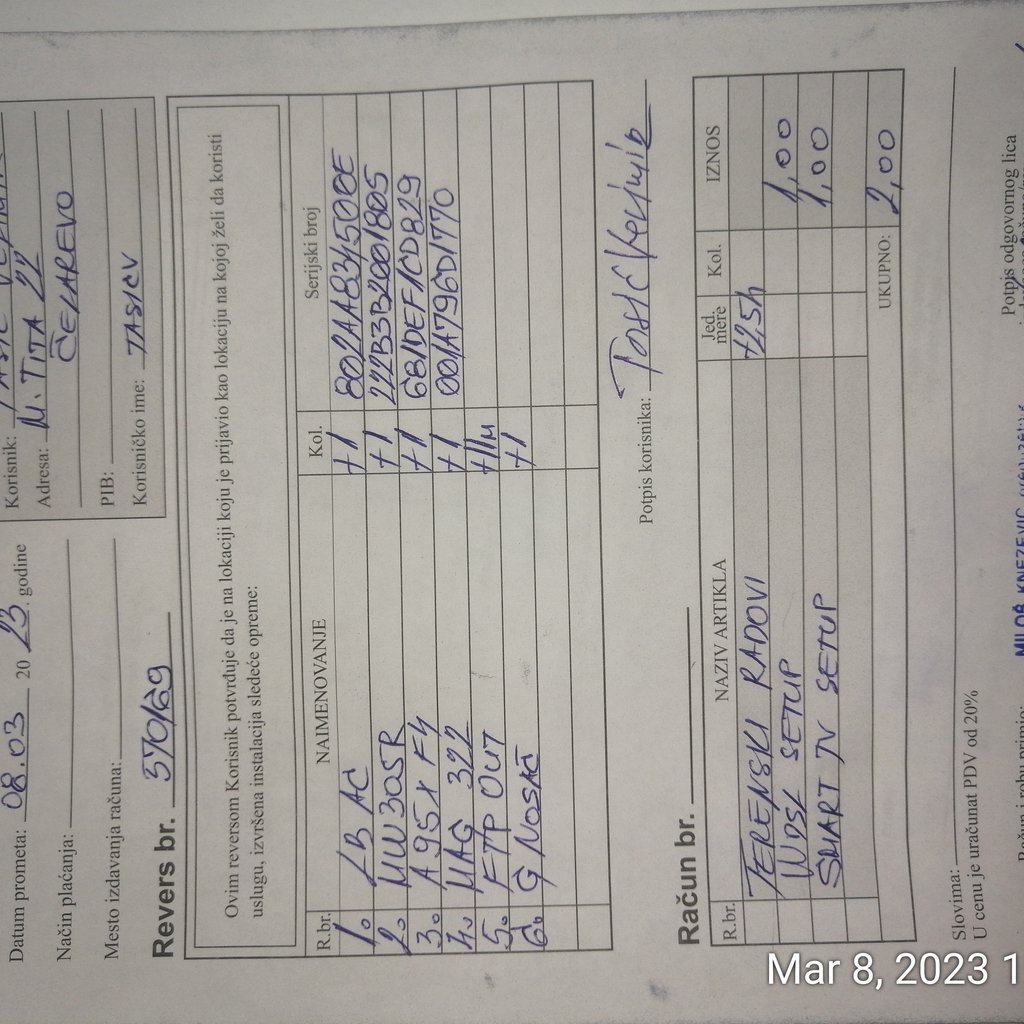 Datum prometa: 08.03 20 23. godine
Način plaćanja:
Mesto izdavanja računa:
Korisnik:
Adresa: M. TITA 22
ČELAREVO
PIB:
Korisničko ime: TASICV
Revers br. 570/69
Ovim reversom Korisnik potvrđuje da je na lokaciji koju je prijavio kao lokaciju na kojoj želi da koristi
uslugu, izvršena instalacija sledeće opreme:
R.br. NAIMENOVANJE Kol. Serijski broj
1. LB AC +1 802AA831500E
2. MW305R +1 222B3B2001805
3. A95X F4 +1 681DEF1CD829
4. MAG 322 +1 001A796D1770
5. FTP OUT +11m
6. G NOSAČ +1
Potpis korisnika:
Račun br.
R.br. NAZIV ARTIKLA Jed. mere Kol. IZNOS
TERENSKI RADOVI +2,5h
WDSL SETUP 1,00
SMART TV SETUP 1,00
UKUPNO: 2,00
Slovima:
U cenu je uračunat PDV od 20%
Račun i robu primio:
MILOŠ KNEZEVIĆ
Potpis odgovornog lica
Mar 8, 2023 1